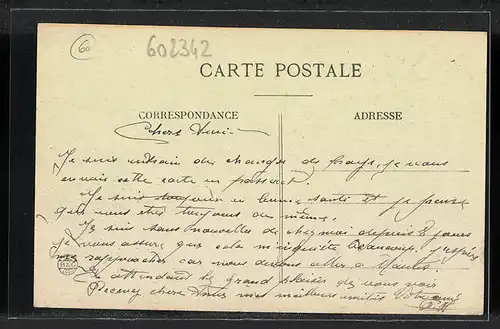 60
602342
CARTE POSTALE
CORRESPONDANCE
ADRESSE
Chers Amis
Je suis en train de changer de pays, je vous
envoie cette carte en passant.
Je suis toujours en bonne santé et je pense
que vous êtes toujours de même.
Je suis sans nouvelles de chez moi depuis 8 jours
je vous assure que cela m'inquiète beaucoup. J'espère
me rapprocher car nous devons aller à
B&G
En attendant le grand plaisir de vous voir
Recevez chers Amis mes meilleurs amitiés Votre ami